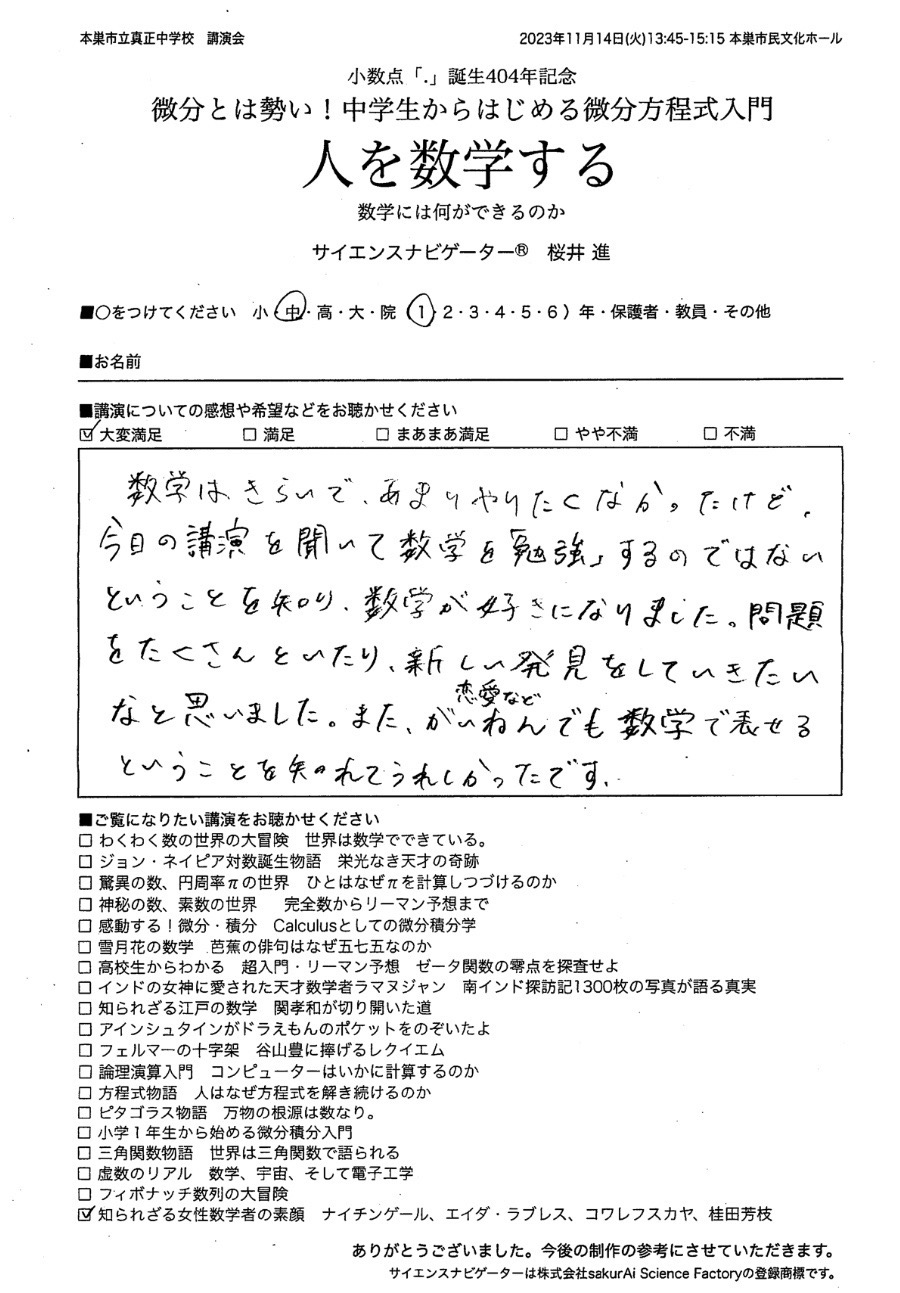 本巣市立真正中学校　講演会　2023年11月14日(火)13:45-15:15 本巣市民文化ホール
小数点「.」誕生404年記念
微分とは勢い！中学生からはじめる微分方程式入門
人を数学する
数学には何ができるのか
サイエンスナビゲーター®　桜井 進
■○をつけてください　小・中・高・大・院（1・2・3・4・5・6）年・保護者・教員・その他
■お名前
■講演についての感想や希望などをお聴かせください
☑ 大変満足　□ 満足　□ まあまあ満足　□ やや不満　□ 不満
数学はきらいで、あまりやりたくなかったけど、
今日の講演を聞いて数学を「勉強」するのではない
ということを知り、数学が好きになりました。問題
をたくさんといたり、新しい発見をしていきたい
恋愛など
なと思いました。また、がいねんでも数学で表せる
ということを知れてうれしかったです。
■ご覧になりたい講演をお聴かせください
□ わくわく数の世界の大冒険　世界は数学でできている。
□ ジョン・ネイピア対数誕生物語　栄光なき天才の奇跡
□ 驚異の数、円周率πの世界　ひとはなぜπを計算しつづけるのか
□ 神秘の数、素数の世界　完全数からリーマン予想まで
□ 感動する！微分・積分　Calculusとしての微分積分学
□ 雪月花の数学　芭蕉の俳句はなぜ五七五なのか
□ 高校生からわかる　超入門・リーマン予想　ゼータ関数の零点を探査せよ
□ インドの女神に愛された天才数学者ラマヌジャン　南インド探訪記1300枚の写真が語る真実
□ 知られざる江戸の数学　関孝和が切り開いた道
□ アインシュタインがドラえもんのポケットをのぞいたよ
□ フェルマーの十字架　谷山豊に捧げるレクイエム
□ 論理演算入門　コンピューターはいかに計算するのか
□ 方程式物語　人はなぜ方程式を解き続けるのか
□ ピタゴラス物語　万物の根源は数なり。
□ 小学１年生から始める微分積分入門
□ 三角関数物語　世界は三角関数で語られる
□ 虚数のリアル　数学、宇宙、そして電子工学
□ フィボナッチ数列の大冒険
☑ 知られざる女性数学者の素顔　ナイチンゲール、エイダ・ラブレス、コワレフスカヤ、桂田芳枝
ありがとうございました。今後の制作の参考にさせていただきます。
サイエンスナビゲーターは株式会社sakurAi Science Factoryの登録商標です。